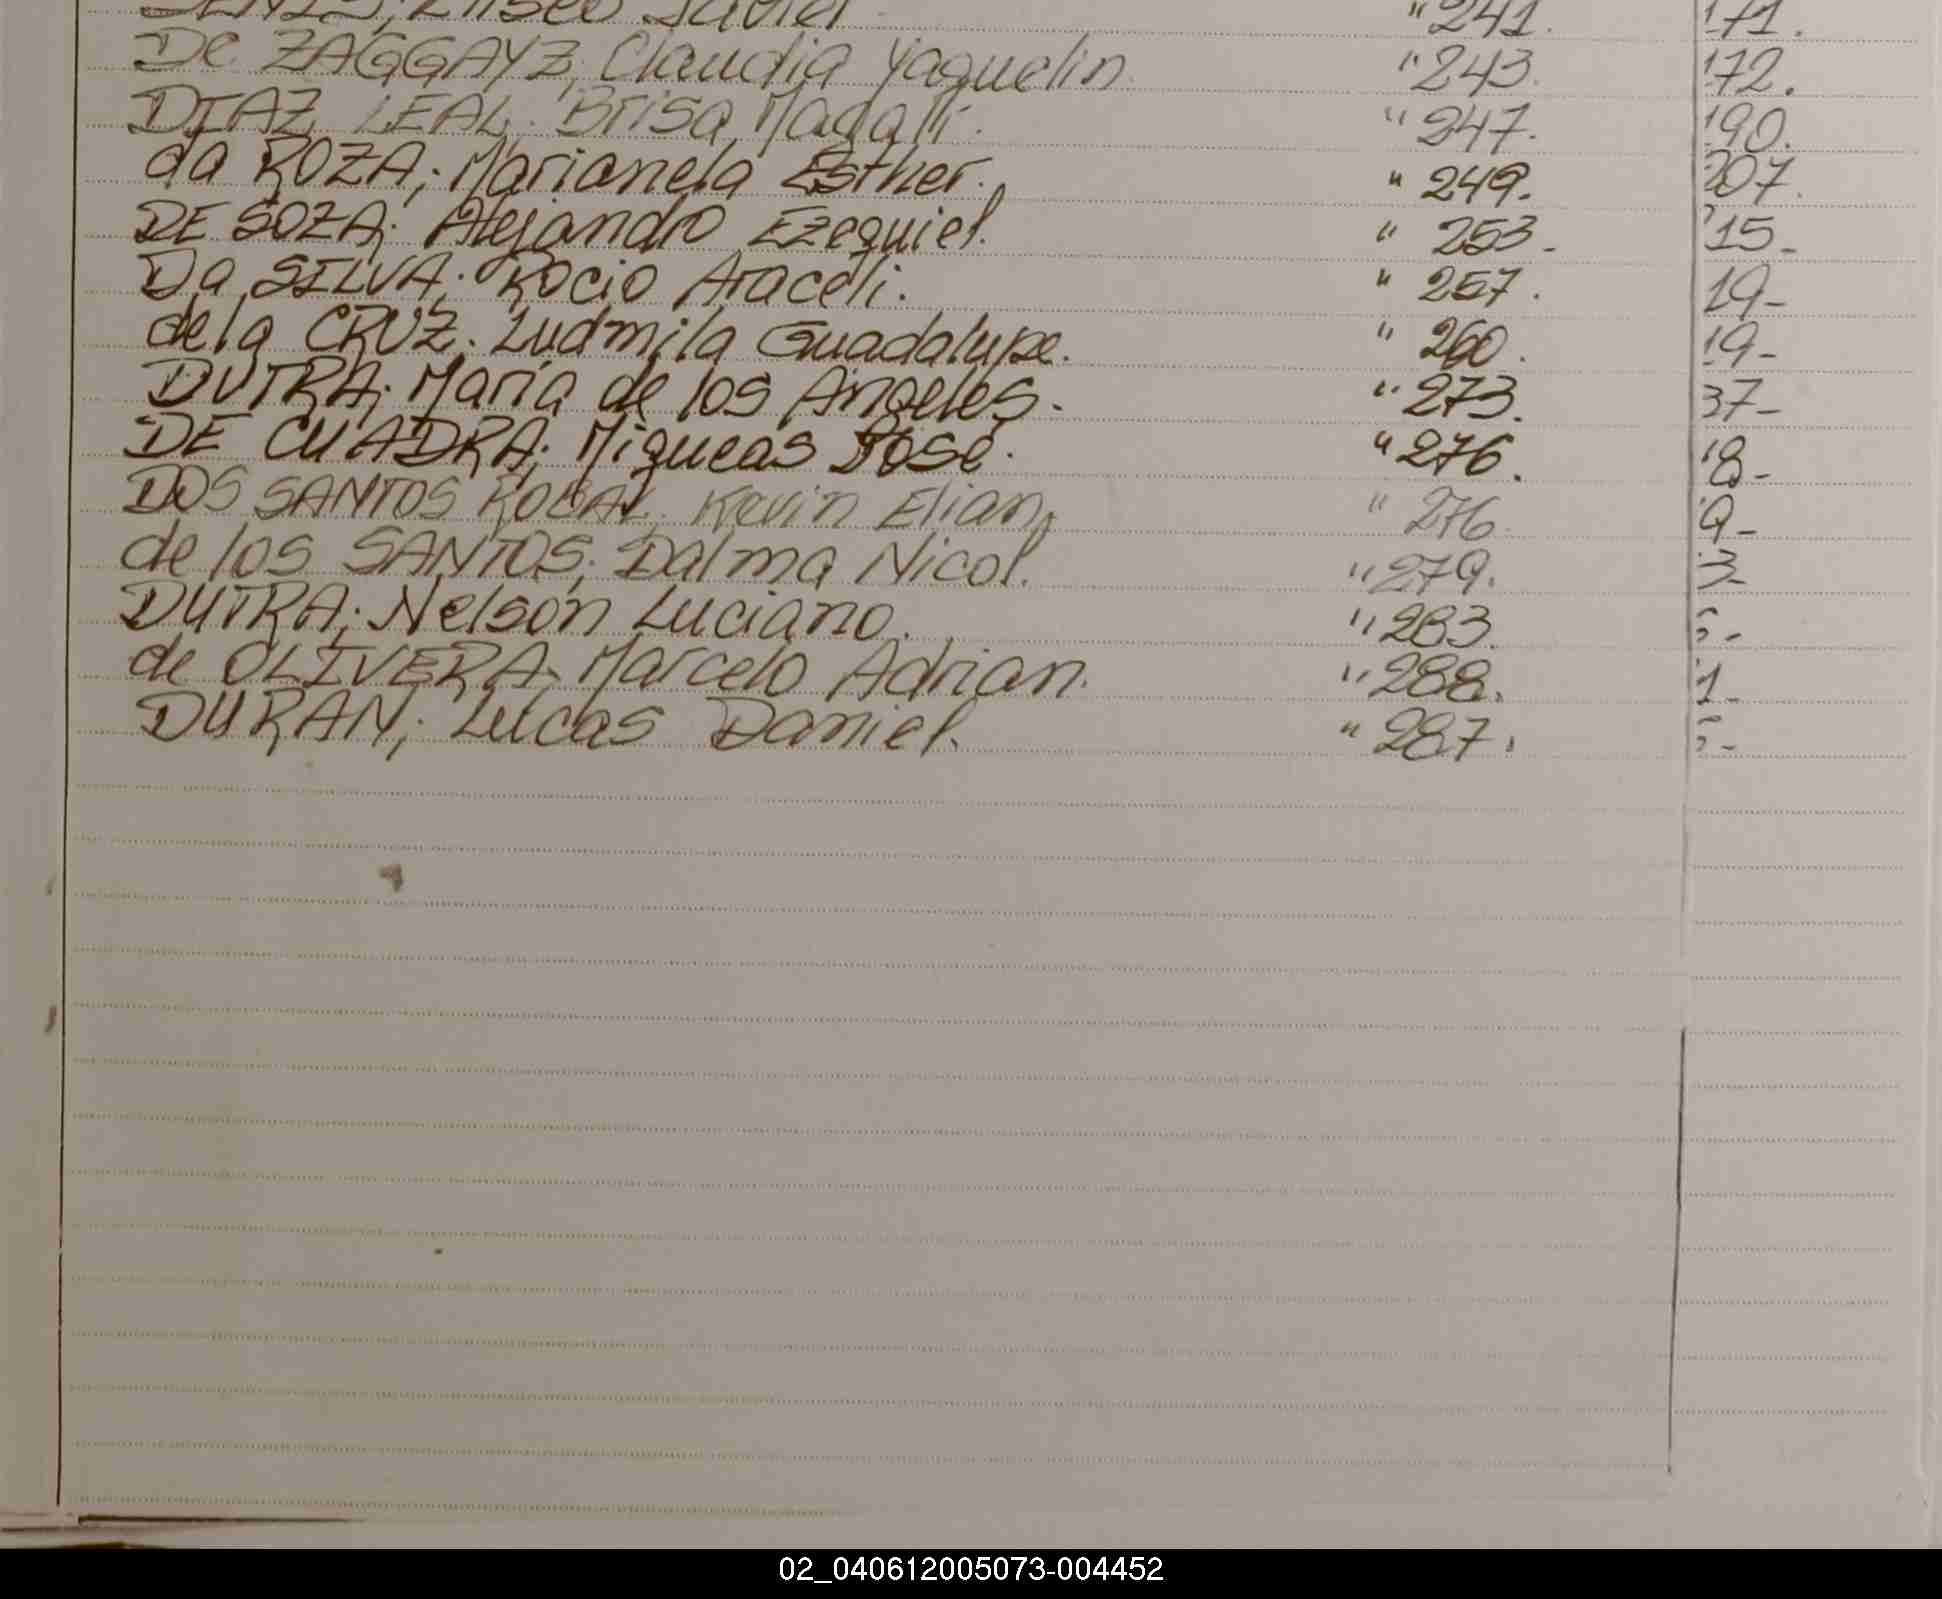 DENIS; Eliseo Javier " 241. 171.
De ZAGGAYZ; Claudia Yaquelin. " 243. 172.
DIAZ LEAL. Brisa Magali. " 247. 190.
da ROZA; Marianela Esther. " 249. 207.
DE SOZA; Alejandro Ezequiel. " 253. 15-
Da SILVA; Rocio Araceli. " 257. 19-
de la CRUZ. Ludmila Guadalupe. " 260. 19-
DUTRA; María de los Angeles. " 273. 37-
DE CUADRA; Miqueas José. " 276. 8-
DOS SANTOS Kevin Elian, " 276. 9-
de los SANTOS; Dalma Nicol. " 279. 3-
DUTRA; Nelson Luciano. " 283.
de OLIVERA; Marcelo Adrian. " 288. 1-
DURAN; Lucas Daniel. " 287.
02_040612005073-004452